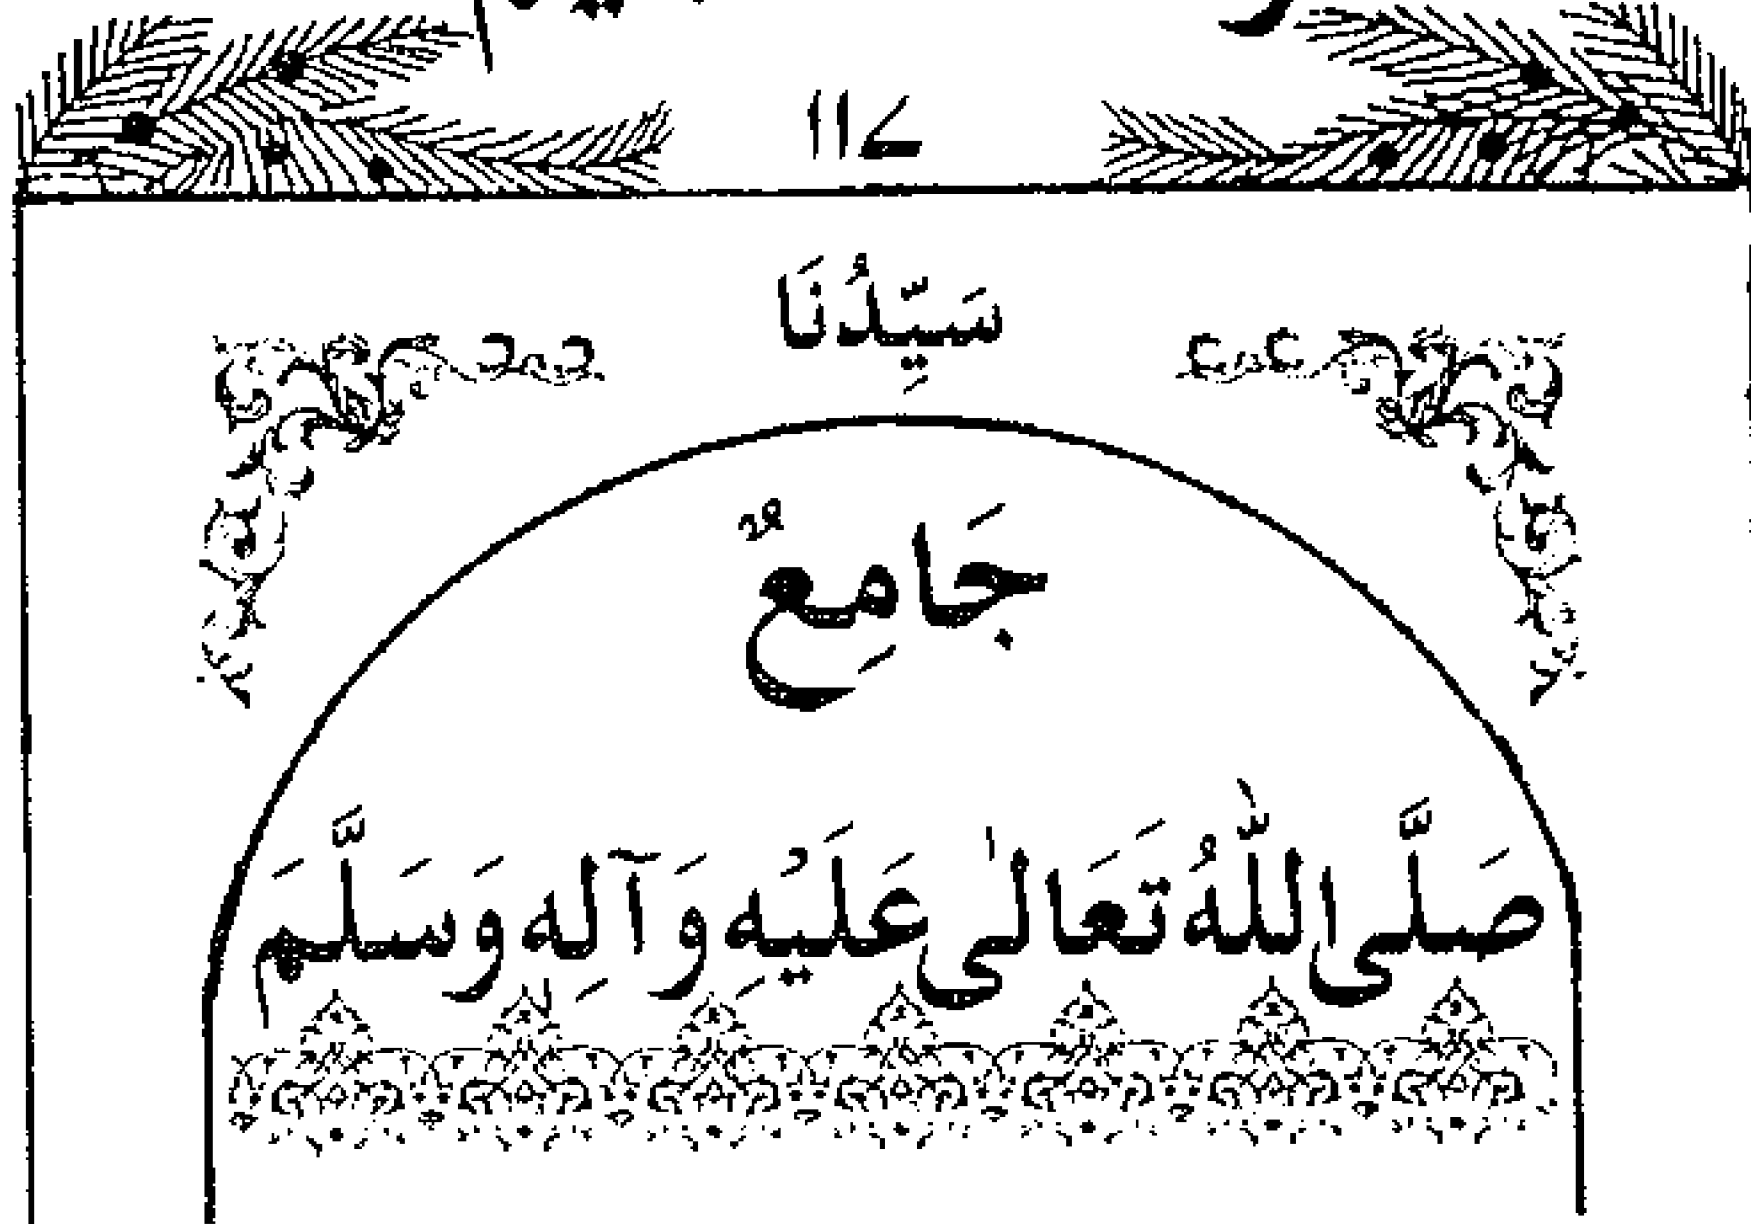 ۱۱۷
سَيِّدُنَا
جَامِعٌ
صَلَّى اللّٰهُ تَعَالٰى عَلَيْهِ وَآلِهٖ وَسَلَّمَ